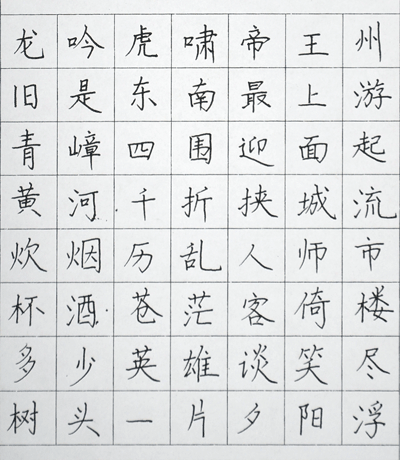 龙吟虎啸帝王州
旧是东南最上游
青嶂四围迎面起
黄河千折挟城流
炊烟历乱人师市
杯酒苍茫客倚楼
多少英雄谈笑尽
树头一片夕阳浮